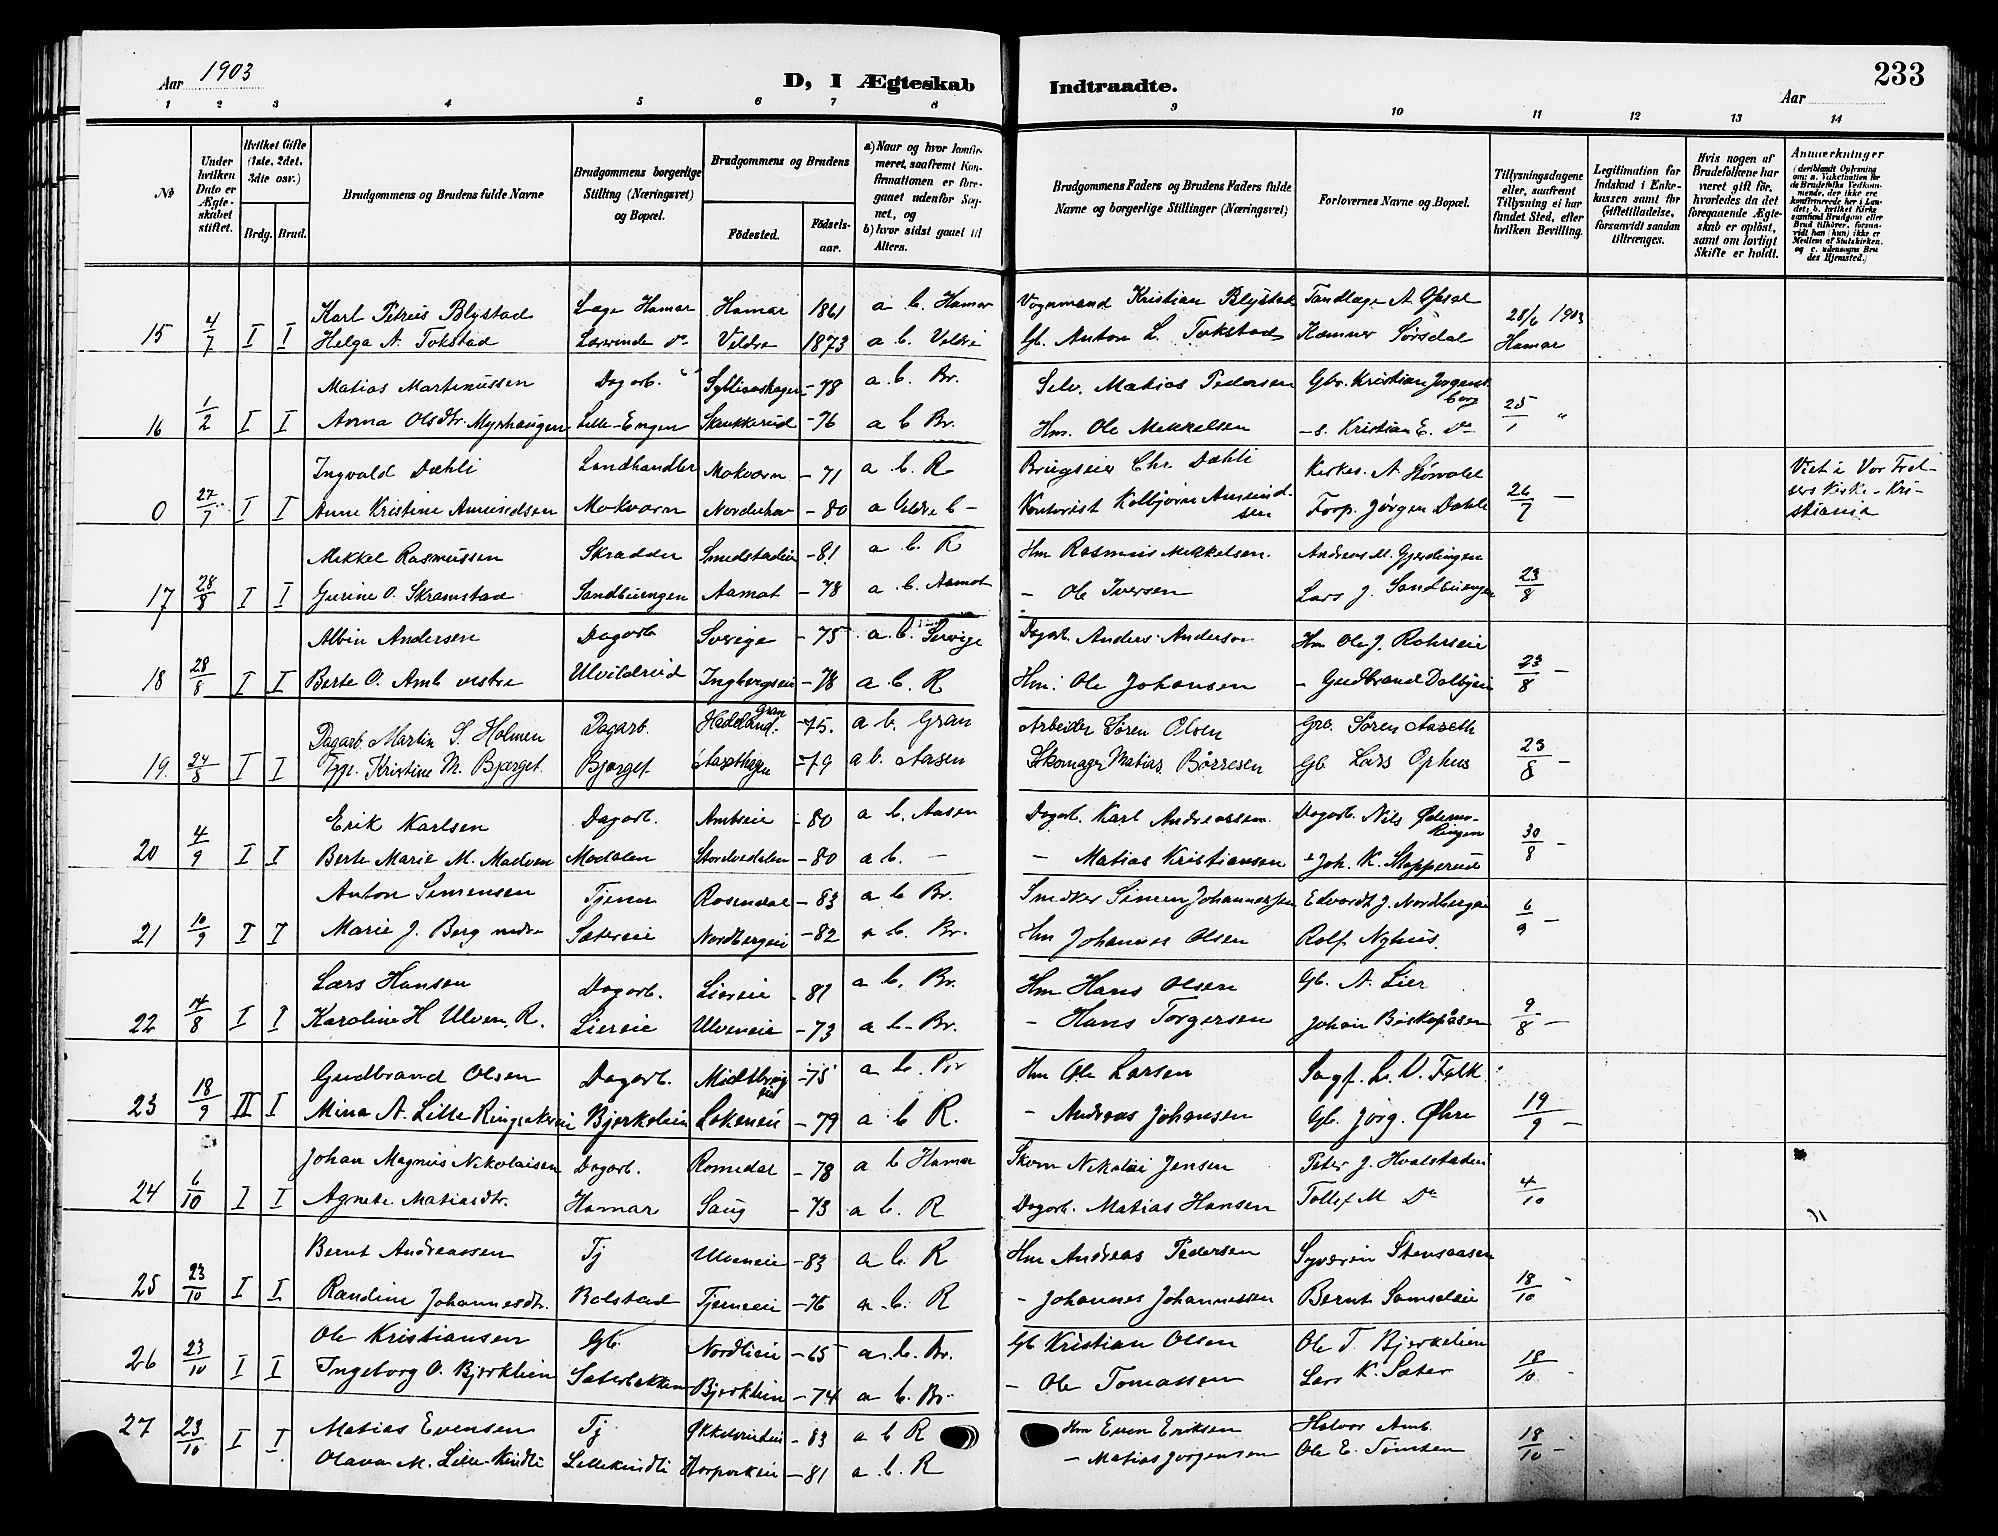 Aar 1903
D, I Ægteskab Indtraadte.
233
Aar
1 2 3 4 5 6 7 8 9 10 11 12 13 14
No
Under hvilken Dato er Ægteskabet stiftet.
Hvilket Gifte (1ste, 2det, 3die osv.)
Brdg. Brud.
Brudgommens og Brudens fulde Navne
Brudgommens borgerlige Stilling (Næringsvei) og Bopæl.
Brudgommens og Brudens
Fødested.
Fødselsaar.
a) Naar og hvor konfirmeret, saafremt Konfirmationen er foregaaet udenfor Sognet, og
b) hvor sidst gaaet til Alters.
Brudgommens Faders og Brudens Faders fulde Navne og borgerlige Stillinger (Næringsvei)
Forlovernes Navne og Bopæl.
Tillysningsdagene eller, saafremt Tillysning ei har fundet Sted, efter hvilken Bevilling.
Legitimation for Indskud i Enkekassen samt for Giftetilladelse, forsaavidt saadan tiltrænges.
Hvis nogen af Brudefolkene har været gift før, hvorledes da det foregaaende Ægteskab er opløst, samt om lovligt Skifte er holdt.
Anmærkninger
(deriblandt Oplysning om: a. Vakcination for de Brudefolks Vedkommende, der ikke ere konfirmerede her i Landet; b. hvilket Kirkesamfund Brudgom eller Brud tilhører, forsaavidt han (hun) ikke er Medlem af Statskirken, og c. udensogns Brudes Hjemsted.)
15 4/7 I I Karl Petrus Blystad Læge Hamar Hamar 1861 a b. Hamar Vognmand Kristian Blystad Tandlæge A. 28/6 1903
Helga A. Tokstad Lærerinde do Veldre 1873 a b. Veldre Gb. Anton L. Tokstad Kæmner Sørsdal Hamar
16 1/2 I I Matias Martinussen Dagarb. - 78 a. b. Br. Selv. Matias Pedersen Gbr. Kristian Jørgens berg 25/1 "
Anna Olsdtr. Myrhaugen Lille-Engen Skukkerud - 76 a b Br. Hm. Ole Mekkelsen -s. Kristian E. do
0 27/7 I I Ingvald Dæhli Landhandler Mokvarn - 71 a. b. R Brugseier Chr. Dæhli Kirkes. A. 26/7 — Viet i Vor Frelsers Kirke - Kristiania
Anne Kristine Amundsen Mokvarn Norderhov - 80 a Veldre b - Kontorist Kolbjørn Amundsen Forp. Jørgen Dæhli
17 28/8 I I Mekkel Rasmussen Skrædder Smedstadeie - 81 a. b. R Hm Rasmus Mekkelsen. Andreas M. Gjerdingen 23/8 -
Gurine O. Skramstad Sandbuengen Aamot - 78 a. b. Aamot - Ole Iversen Lars J. Sandbuengen
18 28/8 I I Albin Andersen Dagarb Sverige - 75 a. b. Sverige Dagarb. Anders Anderson Hm Ole J. Rohrseie 23/8 -
Berte O. Amb vestre Ulvildreid Ingbergseie - 78 a. b. R Hm: Ole Johansen - Gudbrand Dalbyeie
19. 24/8 I I Dagarb. Martin S. Holmen Dagarb. Hadeland Gran - 75. a b. Gran Arbeider Søren Olsen Grb. Søren Aaseth 23/8 -
Pge. Kristine M. Bjerget. Bjerget. Aasthagen - 79 a b. Aasen Skomager Matias Børresen Gb. Lars Ophus
20 4/9 I I Erik Karlsen Dagarb. Ambseie - 80 a b. Aasen Dagarb. Karl Andreassen. Dagarb. Nils 30/8 -
Berte Marie M. Madven Modalen Stordvedalen - 80 a b. - - Matias Kristiansen Joh. K. Stopperud
21 10/9 I I Anton Simensen Tjener Rosendal - 83 a b Br. Smedker Simen Johannessen Edvardt J. Nordbergeie 6/9 -
Marie J. Berg nedre Sætereie Nordbergeie - 82 a b. Br. Hm Johannes Olsen Rolf Nyhus.
22 14/8 I I Lars Hansen Dagarb. Liereie - 81 a b. Br. Hm Hans Olsen Gb. A. Lier 9/8 -
Karoline H Ulven, R. Liereie Ulveneie - 73 a b- Br. - Hans Torgersen Johan Biskopåsen
23 18/9 II I Gudbrand Olsen Dagarb. - 75 a b. Br Hm Ole Larsen Sagf. L. V. Falk. 19/9 -
Mina A. Lille Ringsakereie Bjerkelien Lokeneie - 79 a b R. - Andreas Johansen Gb. Jørg. Øhre
24 6/10 I I Johan Magnus Nikolaisen Dagarb. Romedal - 78 a b Hamar Skom Nikolai Jensen Peter J. Hvalstadeie 4/10
Agnete Matiasdtr. Hamar Saug - 73 a b. R Dagarb. Matias Hansen Tollef M Do
25 23/10 I I Bernt Andreassen Tj Ulveneie - 83 a b. R Hm Andreas Pedersen Syverin Stensaasen 18/10 -
Randine Johannesdtr. Bolstad Tjerneeie - 76 a. b. R - Johannes Johannessen Bernt Samseleie
26 23/10 I I Ole Kristiansen Gb. Nordlieie - 65 a. b. Br. Gb Kristian Olsen Ole T. Bjerkelien 18/10 -
Ingeborg O. Bjerklien Sæterbakken Bjerklien - 74 a b. Br. - Ole Tomassen Lars K. Sæter
27 23/10 I I Matias Evensen Tj - 83 a b R Hm Even Eriksen Halvor Amb. 18/10 -
Olava M. Lille-Kindli Lillekindli - 81 a. b. R - Matias Jørgensen Ole E. Tomten